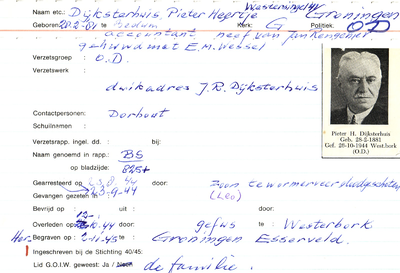 Westersingel 44
Naam etc.: Dijksterhuis, Pieter Heertje Groningen
Geboren: 28-2-81 te Bedum Kerk: G Politiek: OD
accountant neef van
gehuwd met E.M. Wessel
Verzetsgroep : O.D.
dwikadres J.R. Dijksterhuis
Contactpersonen: Dorhout
Schuilnamen :
Verzetsrapp. ingel. dd. : bij:
Naam genoemd in rapp.: BS
op bladzijde: 825+
Gearresteerd op door: zoon te Wormerveer
Gevangen gezeten: 23.9.44 (Leo)
Bevrijd op : uit : door:
Overleden op 10.44 door: gefus. te Westerbork
Her Begraven op : 2-11-45 te Groningen Esserveld.
Ingeschreven bij de Stichting 40/45:
Lid G.O.I.W. geweest: Ja / Neen de familie.
Pieter H. Dijksterhuis
Geb. 28-2-1881
Gef. 20-10-1944 West.bork
(O.D.)